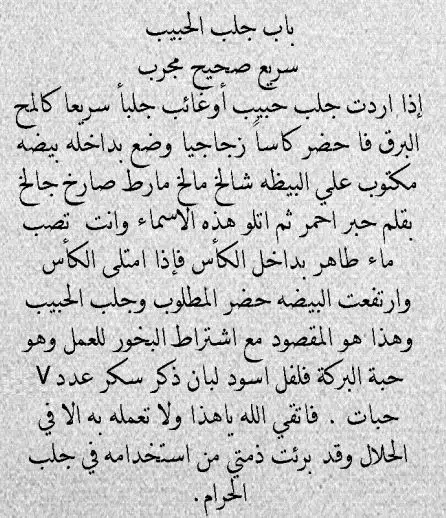 باب جلب الحبيب
سريع صحيح مجرب
إذا اردت جلب حبيب أوغائب جلباً سريعا كالمح
البرق فا حضر كاساً زجاجيا وضع بداخله بيضه
مكتوب علي البيظه شالخ مالخ مارط صارخ جالخ
بقلم حبر احمر ثم اتلو هذه الاسماء وانت تصب
ماء طاهر بداخل الكأس فإذا امتلى الكأس
وارتفعت البيضه حضر المطلوب وجلب الحبيب
وهذا هو المقصود مع اشتراط البخور للعمل وهو
حبة البركة فلفل اسود لبان ذكر سكر عدد ٧
حبات . فاتقي الله ياهذا ولا تعمله به الا في
الحلال وقد برئت ذمتي من استخدامه في جلب
الحرام.